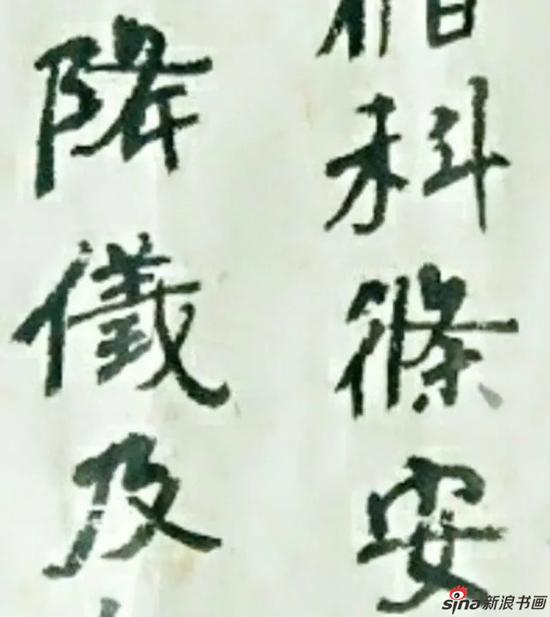 科條安
降儀及
sina新浪书画